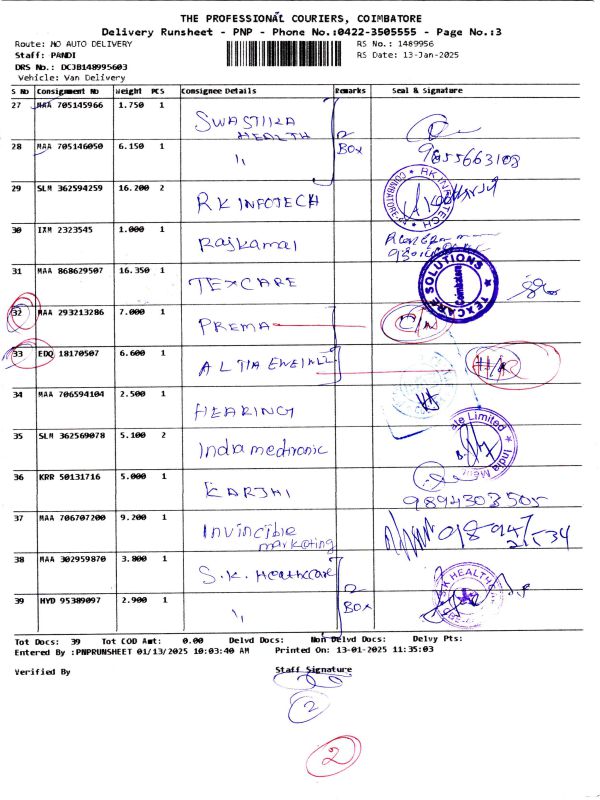 THE PROFESSIONAL COURIERS, COIMBATORE
Delivery Runsheet - PNP - Phone No.:0422-3505555 - Page No.:3
Route: NO AUTO DELIVERY RS No.: 1489956
Staff: PANDI RS Date: 13-Jan-2025
DRS No.: DCJB148995603
Vehicle: Van Delivery
S No Consignment No Weight PCS Consignee Details Remarks Seal & Signature
27 MAA 705145966 1.750 1 SWASTIKA HEALTH
28 MAA 705146050 6.150 1 " 2 BOX 9855663108
29 SLM 362594259 16.200 2 RK INFOTECH RK INFOTECH COIMBATORE
30 IXM 2323545 1.000 1 Rajkamal
31 MAA 868629507 16.350 1 TEXCARE TEXCARE SOLUTIONS Coimbatore
32 MAA 293213286 7.000 1 PREMA
33 EDQ 18170507 6.600 1
34 MAA 706594104 2.500 1 HEARING
35 SLM 362569078 5.100 2 India medtronic India
36 KRR 50131716 5.000 1 9894303505
37 MAA 706707200 9.200 1 Invincible marketing
38 MAA 302959870 3.800 1 S.K. Healthcare
39 HYD 95389097 2.900 1 " 2 BOX S.K HEALTH
Tot Docs: 39 Tot COD Amt: 0.00 Delvd Docs: Non Delvd Docs: Delvy Pts:
Entered By :PNPRUNSHEET 01/13/2025 10:03:40 AM Printed On: 13-01-2025 11:35:03
Verified By Staff Signature
2
2